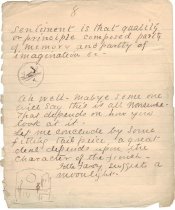 8
Sentiment is that quality
or principle composed partly
of memory and partly of
imagination or-
Ah well- mabye some one
will say this is all nonsense-
That depends on how you
look at it.
Let me conclude by some
fitting tail piece, "a great
deal depends upon the
character of the
suggest a
moonlight-